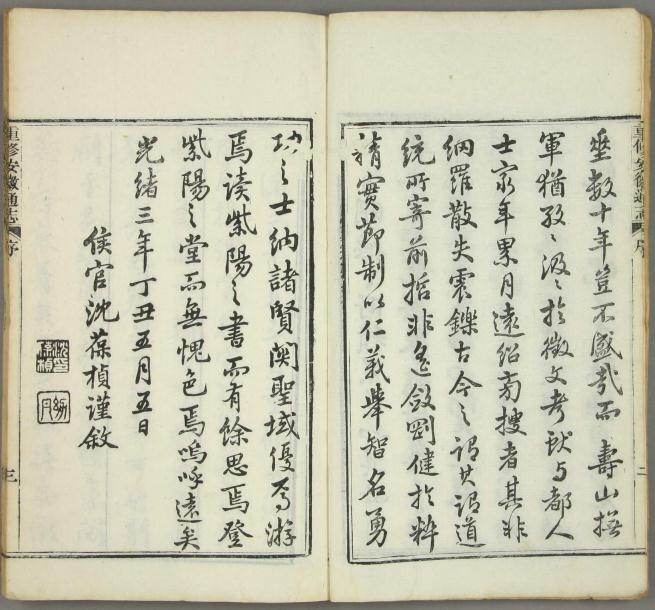 垂數十年豈不盛哉而壽山撫
軍猶孜〻汲〻於徵文考獻与都人
士窮年累月遠紹旁搜者其非
網羅散失震鑠古今之謂其謂道
統所寄前哲非遙斂剛健於粹
精實節制以仁義舉智名勇
功之士納諸賢關聖域優焉游
焉讀紫陽之書而有餘思焉登
紫陽之堂而無愧色焉嗚呼遠矣
光緒三年丁丑五月五日
侯官沈葆楨謹敘
重修安徽通志
序
二
重修安徽通志
序
三